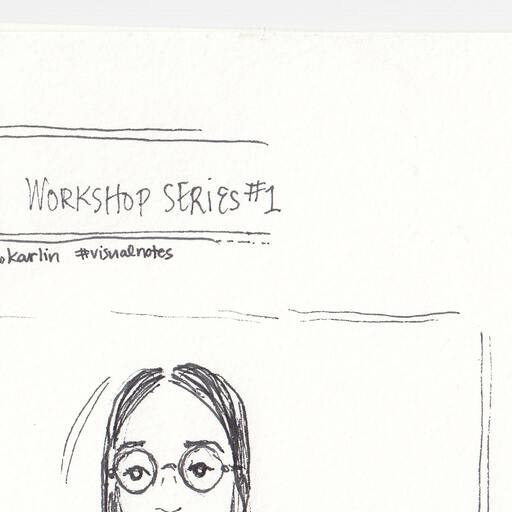 WORKSHOP SERIES #1
okarlin #visualnotes